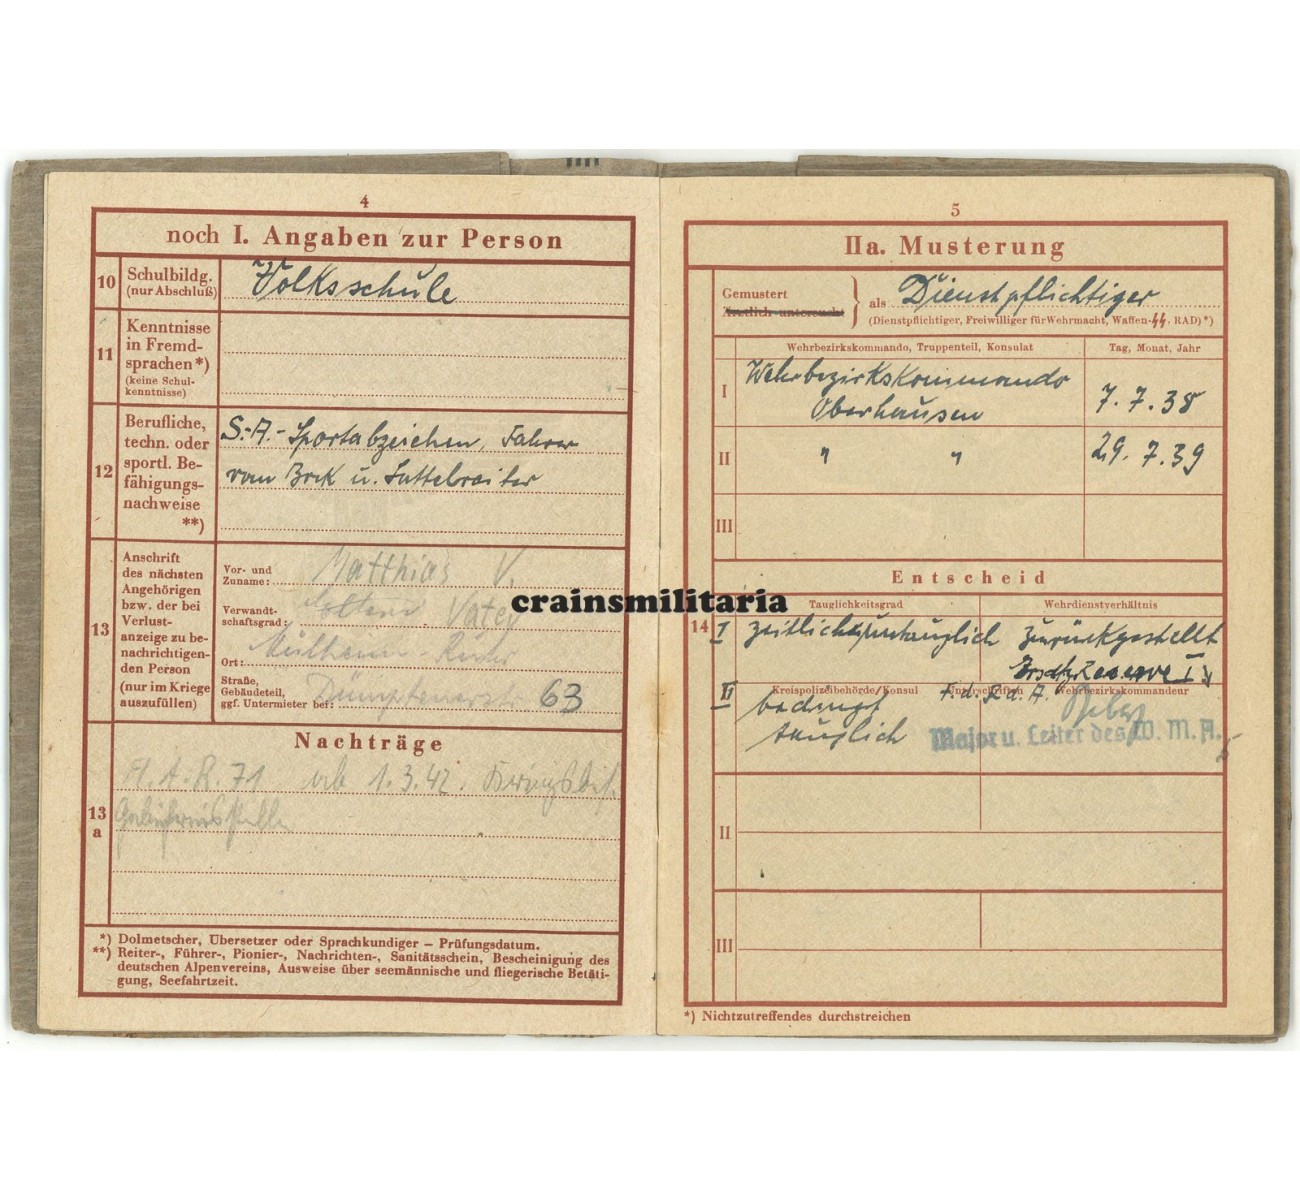 4
noch I. Angaben zur Person
10
Schulbildg.
(nur Abschluß)
Volksschule
11
Kenntnisse
in Fremd-
sprachen*)
(keine Schul-
kenntnisse)
12
Berufliche,
techn. oder
sportl. Be-
fähigungs-
nachweise
**)
S.-A.-Sportabzeichen, Fahrer
vom Bock u. Sattelreiter
13
Anschrift
des nächsten
Angehörigen
bzw. der bei
Verlust-
anzeige zu be-
nachrichtigen-
den Person
(nur im Kriege
auszufüllen)
Vor- und
Zuname:
Matthias V.
Verwandt-
schaftsgrad:
Vater
Ort:
Mülheim Ruhr
Straße,
Gebäudeteil,
ggf. Untermieter bei:
Dümptenerstr. 63
Nachträge
13
a
A.A.R. 71 ab 1.3.42.
*) Dolmetscher, Übersetzer oder Sprachkundiger – Prüfungsdatum.
**) Reiter-, Führer-, Pionier-, Nachrichten-, Sanitätsschein, Bescheinigung des
deutschen Alpenvereins, Ausweise über seemännische und fliegerische Betäti-
gung, Seefahrtzeit.
5
IIa. Musterung
Gemustert
Ärztlich untersucht
als Dienstpflichtiger
(Dienstpflichtiger, Freiwilliger für Wehrmacht, Waffen-SS, RAD)*)
Wehrbezirkskommando, Truppenteil, Konsulat
Tag, Monat, Jahr
I
Wehrbezirkskommando
Oberhausen
7.7.38
II
" "
29.7.39
III
Entscheid
Tauglichkeitsgrad
Wehrdienstverhältnis
14
I zeitlich untauglich
zurückgestellt
Ersatzreserve I
Kreispolizeibehörde/Konsul
Unterschriften
Wehrbezirkskommandeur
II bedingt
tauglich
F.d.R.d.A.
Major u. Leiter des W. M. A.
II
III
*) Nichtzutreffendes durchstreichen
crainsmilitaria